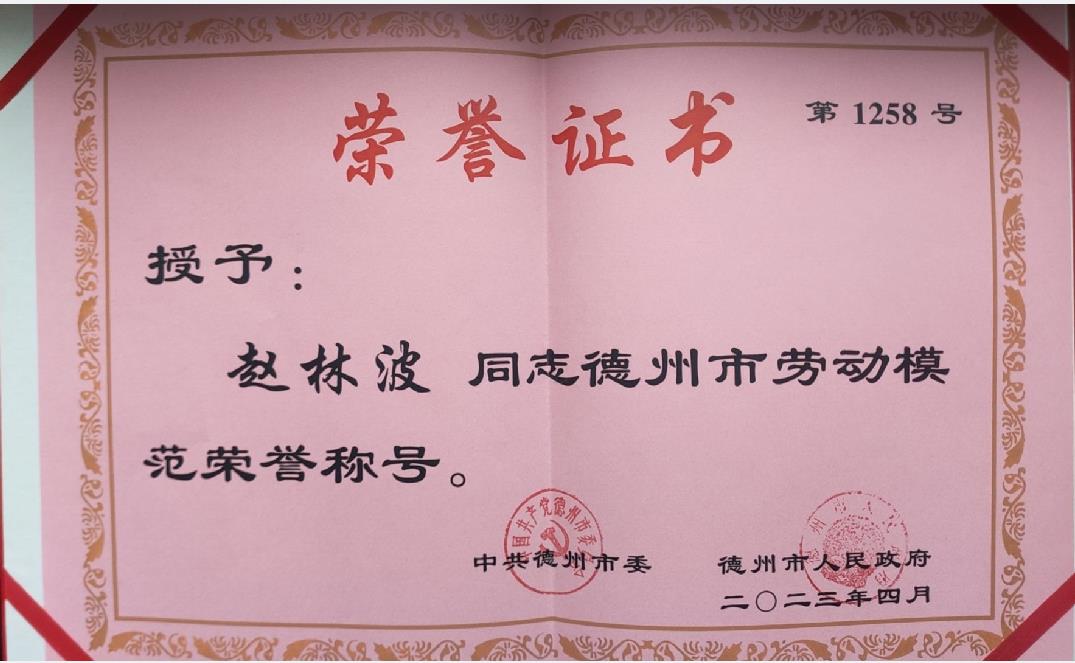 荣誉证书
第 1258 号
授予：
赵林波 同志德州市劳动模
范荣誉称号。
中共德州市委
德州市人民政府
二〇二三年四月